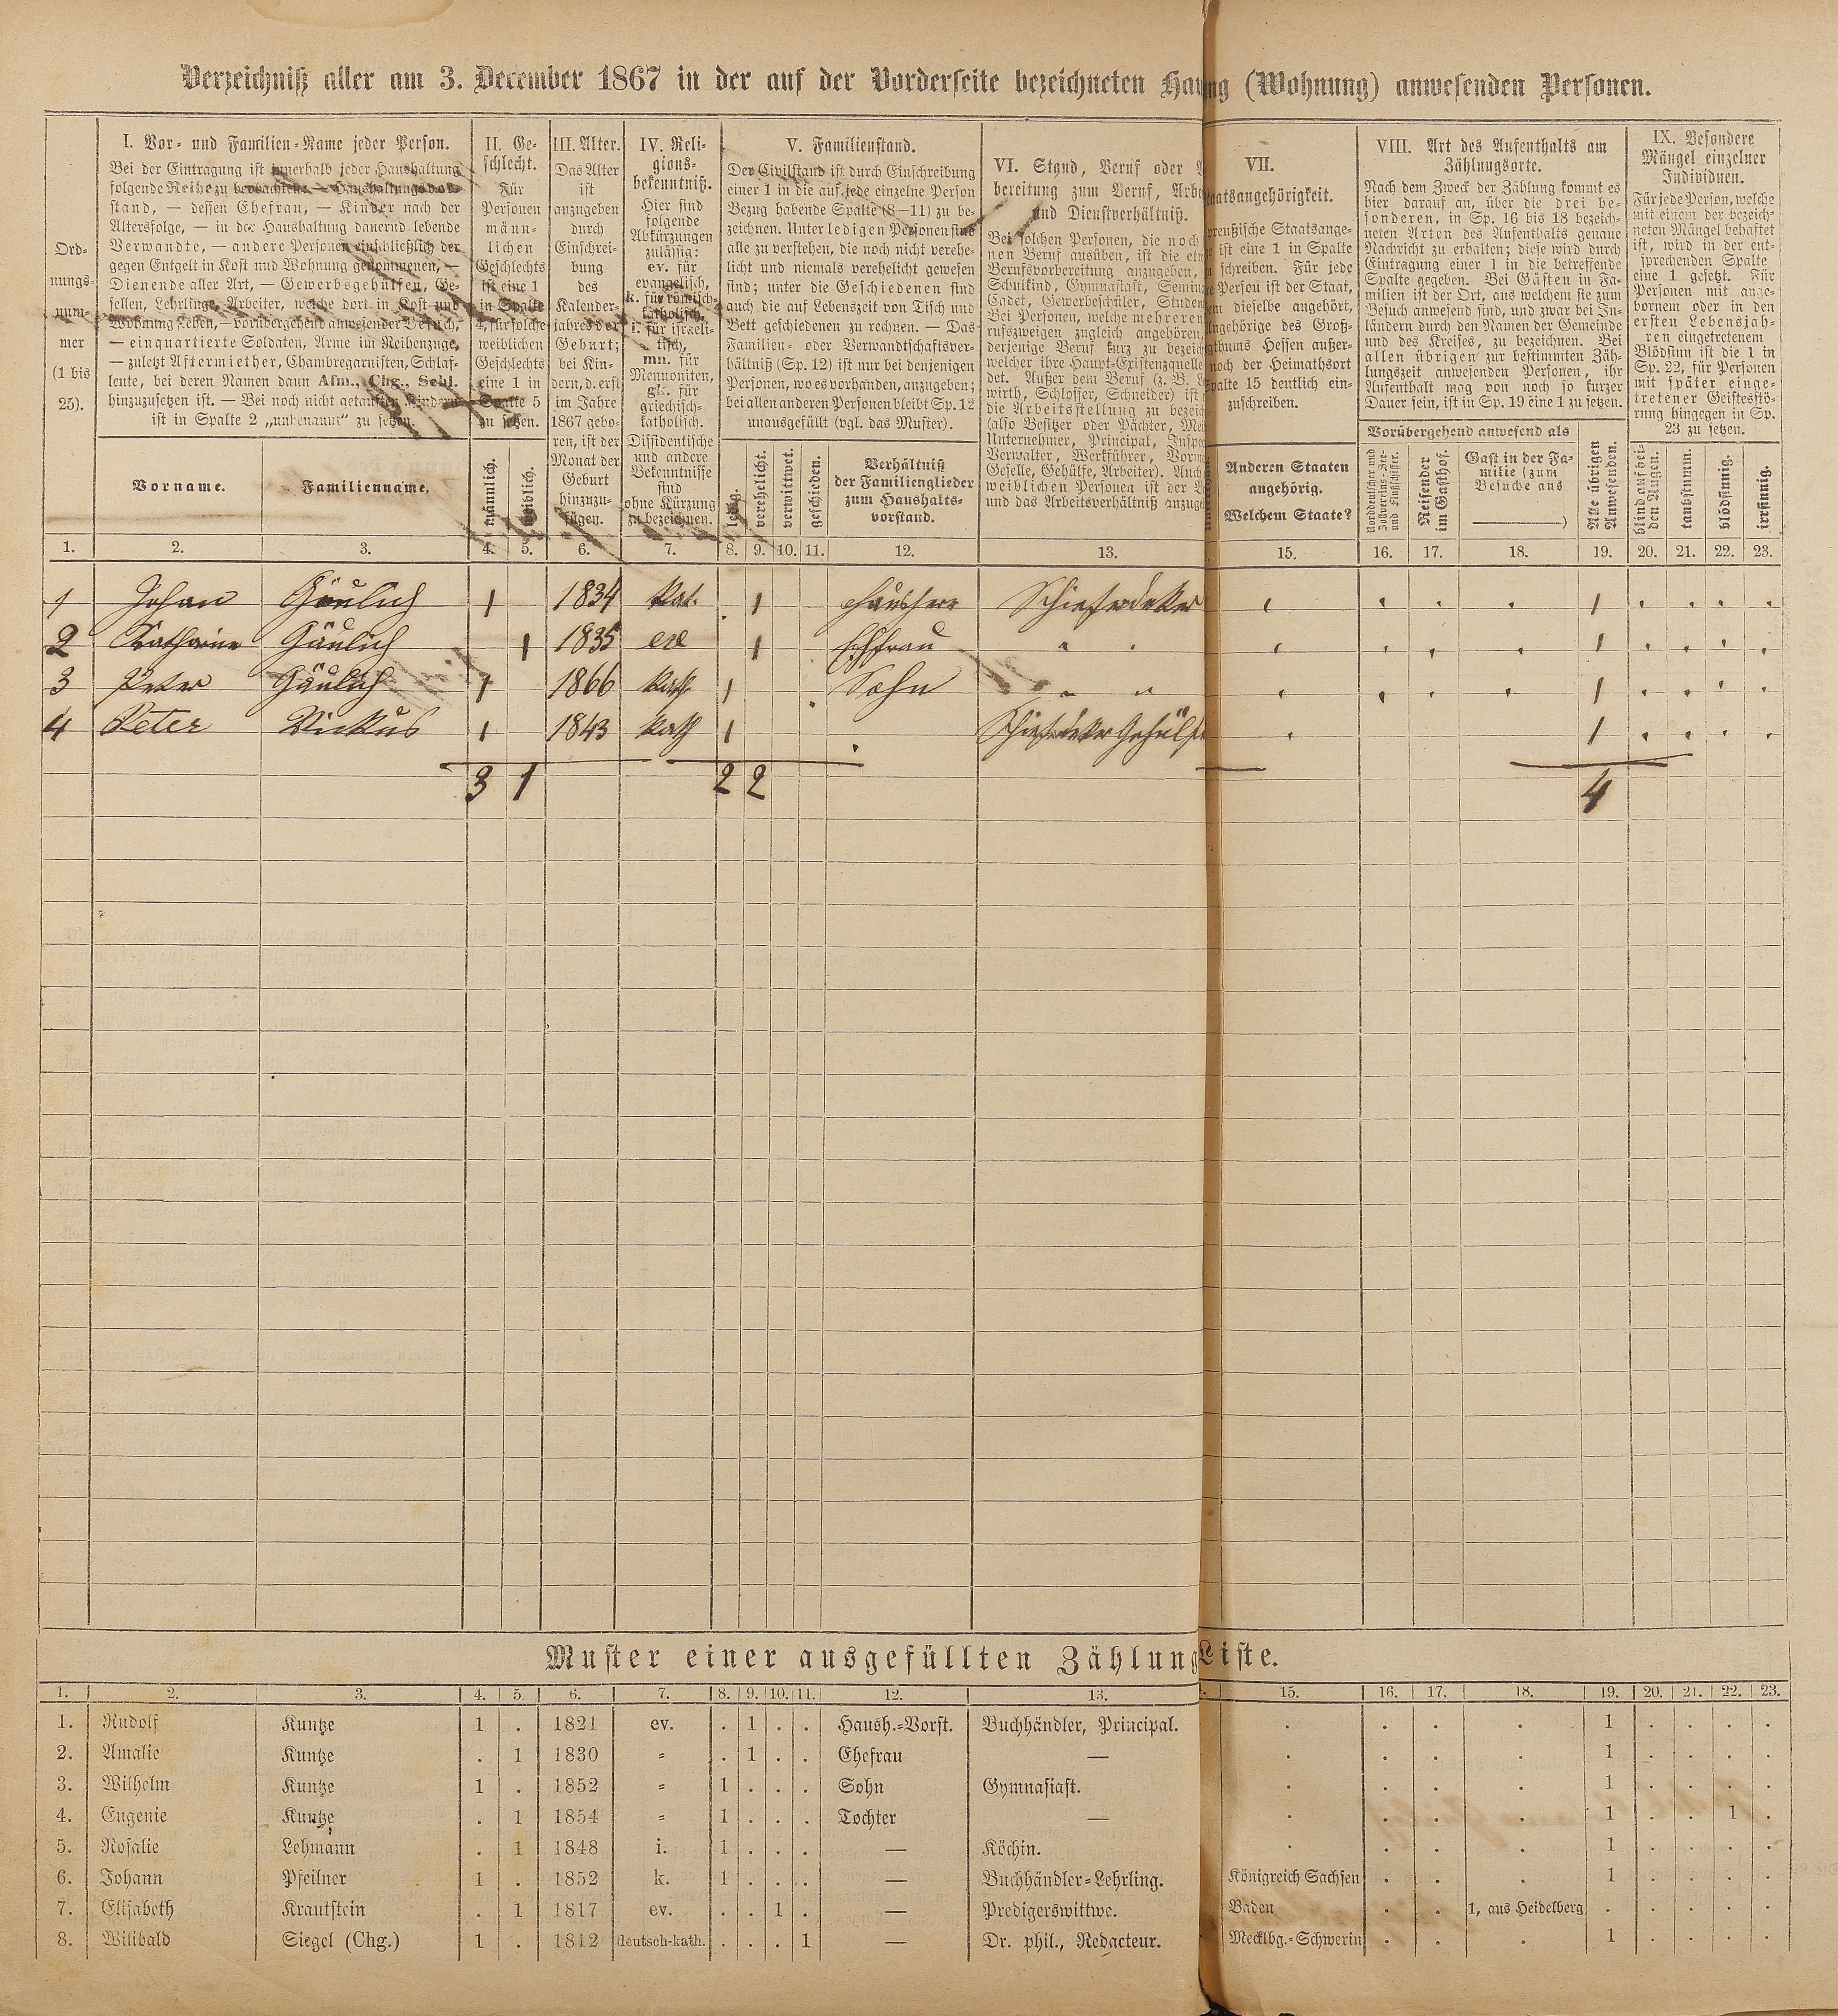 Verzeichniß aller am 3. December 1867 in der auf der Vorderseite bezeichneten Hau ng (Wohnung) anwesenden Personen.
Ord-
nungs-
num-
mer
(1 bis
25).
I. Vor- und Familien-Name jeder Person.
Bei der Eintragung ist innerhalb jeder Haushaltung
folgende Reihe zu beobachten: — Haushaltungsvor-
stand, — dessen Ehefrau, — Kinder nach der
Altersfolge, — in der Haushaltung dauernd lebende
Verwandte, — andere Personen einschließlich der
gegen Entgelt in Kost und Wohnung genommenen, —
Dienende aller Art, — Gewerbsgehülfen, Ge-
sellen, Lehrlinge, Arbeiter, welche dort in Kost und
Wohnung stehen, — vorübergehend anwesender Besuch,
— einquartierte Soldaten, Arme im Reihenzuge,
— zuletzt Aftermiether, Chambregarnisten, Schlaf-
leute, bei deren Namen dann Afm., Chg., Schl.
hinzuzusetzen ist. — Bei noch nicht getauften Kindern
ist in Spalte 2 „unbenannt“ zu setzen.
Vorname.
Familienname.
II. Ge-
schlecht.
Für
Personen
männ-
lichen
Geschlechts
ist eine 1
in Spalte
4, für solche
weiblichen
Geschlechts
eine 1 in
Spalte 5
zu setzen.
männlich.
weiblich.
III. Alter.
Das Alter
ist
anzugeben
durch
Einschrei-
bung
des
Kalender-
jahres der
Geburt;
bei Kin-
dern, d. erst
im Jahre
1867 gebo-
ren, ist der
Monat der
Geburt
hinzuzu-
fügen.
IV. Reli-
gions-
bekenntniß.
Hier sind
folgende
Abkürzungen
zulässig:
ev. für
evangelisch,
k. für römisch-
katholisch,
i. für israeli-
tisch,
mn. für
Mennoniten,
gk. für
griechisch-
katholisch.
Dissidentische
und andere
Bekenntnisse
sind
ohne Kürzung
zu bezeichnen.
V. Familienstand.
Der Civilstand ist durch Einschreibung
einer 1 in die auf jede einzelne Person
Bezug habende Spalte (8—11) zu be-
zeichnen. Unter ledigen Personen sind
alle zu verstehen, die noch nicht verehe-
licht und niemals verehelicht gewesen
sind; unter die Geschiedenen sind
auch die auf Lebenszeit von Tisch und
Bett geschiedenen zu rechnen. — Das
Familien- oder Verwandtschaftsver-
hältniß (Sp. 12) ist nur bei denjenigen
Personen, wo es vorhanden, anzugeben;
bei allen anderen Personen bleibt Sp. 12
unausgefüllt (vgl. das Muster).
ledig.
verehelicht.
verwittwet.
geschieden.
Verhältniß
der Familienglieder
zum Haushalts-
vorstand.
VI. Stand, Beruf oder
bereitung zum Beruf, Arbe
und Dienstverhältniß.
Bei solchen Personen, die noch
nen Beruf ausüben, ist die etw
Berufsvorbereitung anzugeben,
Schulkind, Gymnasiast, Semin
Cadet, Gewerbeschüler, Studen
Bei Personen, welche mehreren
rufszweigen zugleich angehören,
derjenige Beruf kurz zu bezeich
welcher ihre Haupt-Existenzquelle
det. Außer dem Beruf (z. B. L
wirth, Schlosser, Schneider) ist
die Arbeitsstellung zu bezeic
(also Besitzer oder Pächter, Mei
Unternehmer, Principal, Inspe
Verwalter, Werkführer, Vorm
Geselle, Gehülfe, Arbeiter). Auch
weiblichen Personen ist der B
und das Arbeitsverhältniß anzuge
VII.
taatsangehörigkeit.
preußische Staatsange-
ist eine 1 in Spalte
schreiben. Für jede
e Person ist der Staat,
em dieselbe angehört,
Angehörige des Groß-
gthums Hessen außer-
noch der Heimathsort
palte 15 deutlich ein-
zuschreiben.
Anderen Staaten
angehörig.
Welchem Staate?
VIII. Art des Aufenthalts am
Zählungsorte.
Nach dem Zweck der Zählung kommt es
hier darauf an, über die drei be-
sonderen, in Sp. 16 bis 18 bezeich-
neten Arten des Aufenthalts genaue
Nachricht zu erhalten; diese wird durch
Eintragung einer 1 in die betreffende
Spalte gegeben. Bei Gästen in Fa-
milien ist der Ort, aus welchem sie zum
Besuch anwesend sind, und zwar bei In-
ländern durch den Namen der Gemeinde
und des Kreises, zu bezeichnen. Bei
allen übrigen zur bestimmten Zäh-
lungszeit anwesenden Personen, ihr
Aufenthalt mag von noch so kurzer
Dauer sein, ist in Sp. 19 eine 1 zu setzen.
Vorübergehend anwesend als
Norddeutscher und
Zollvereins-See-
und Flußschiffer.
Reisender
im Gasthof.
Gast in der Fa-
milie (zum
Besuche aus
)
Alle übrigen
Anwesenden.
IX. Besondere
Mängel einzelner
Individuen.
Für jede Person, welche
mit einem der bezeich-
neten Mängel behaftet
ist, wird in der ent-
sprechenden Spalte
eine 1 gesetzt. Für
Personen mit ange-
bornem oder in den
ersten Lebensjah-
ren eingetretenem
Blödsinn ist die 1 in
Sp. 22, für Personen
mit später einge-
tretener Geistesstö-
rung hingegen in Sp.
23 zu setzen.
blind auf bei-
den Augen.
taubstumm.
blödsinnig.
irrsinnig.
1. 2. 3. 4. 5. 6. 7. 8. 9. 10. 11. 12. 13. 15. 16. 17. 18. 19. 20. 21. 22. 23.
1 Johan Gäulich 1 1834 Kat. 1 Hausherr Schieferdeker 1
2 Katharine Gäulich 1 1835 ev 1 Ehfrau " 1
3 Peter Gäulich 1 1866 Kath 1 Sohn " " 1
4 Peter Vickus 1 1843 Kath 1 Schieferdeker Gehülfe 1
3 1 2 2 4
Muster einer ausgefüllten Zählung Liste.
1. 2. 3. 4. 5. 6. 7. 8. 9. 10. 11. 12. 13. 15. 16. 17. 18. 19. 20. 21. 22. 23.
1. Rudolf Kuntze 1 . 1821 ev. . 1 . . Haush.-Vorst. Buchhändler, Principal. . . . . 1 . . . .
2. Amalie Kuntze . 1 1830 " . 1 . . Ehefrau — . . . . 1 . . . .
3. Wilhelm Kuntze 1 . 1852 " 1 . . . Sohn Gymnasiast. . . . . 1 . . . .
4. Eugenie Kuntze . 1 1854 " 1 . . . Tochter — . . . . 1 . . 1 .
5. Rosalie Lehmann . 1 1848 i. 1 . . . — Köchin. . . . . 1 . . . .
6. Johann Pfeilner 1 . 1852 k. 1 . . . — Buchhändler-Lehrling. Königreich Sachsen . . . 1 . . . .
7. Elisabeth Krautstein . 1 1817 ev. . . 1 . — Predigerswittwe. Baden . . 1, aus Heidelberg . . . . .
8. Wilibald Siegel (Chg.) 1 . 1812 deutsch-kath. . . . 1 — Dr. phil., Redacteur. Mecklbg.-Schwerin . . . 1 . . . .